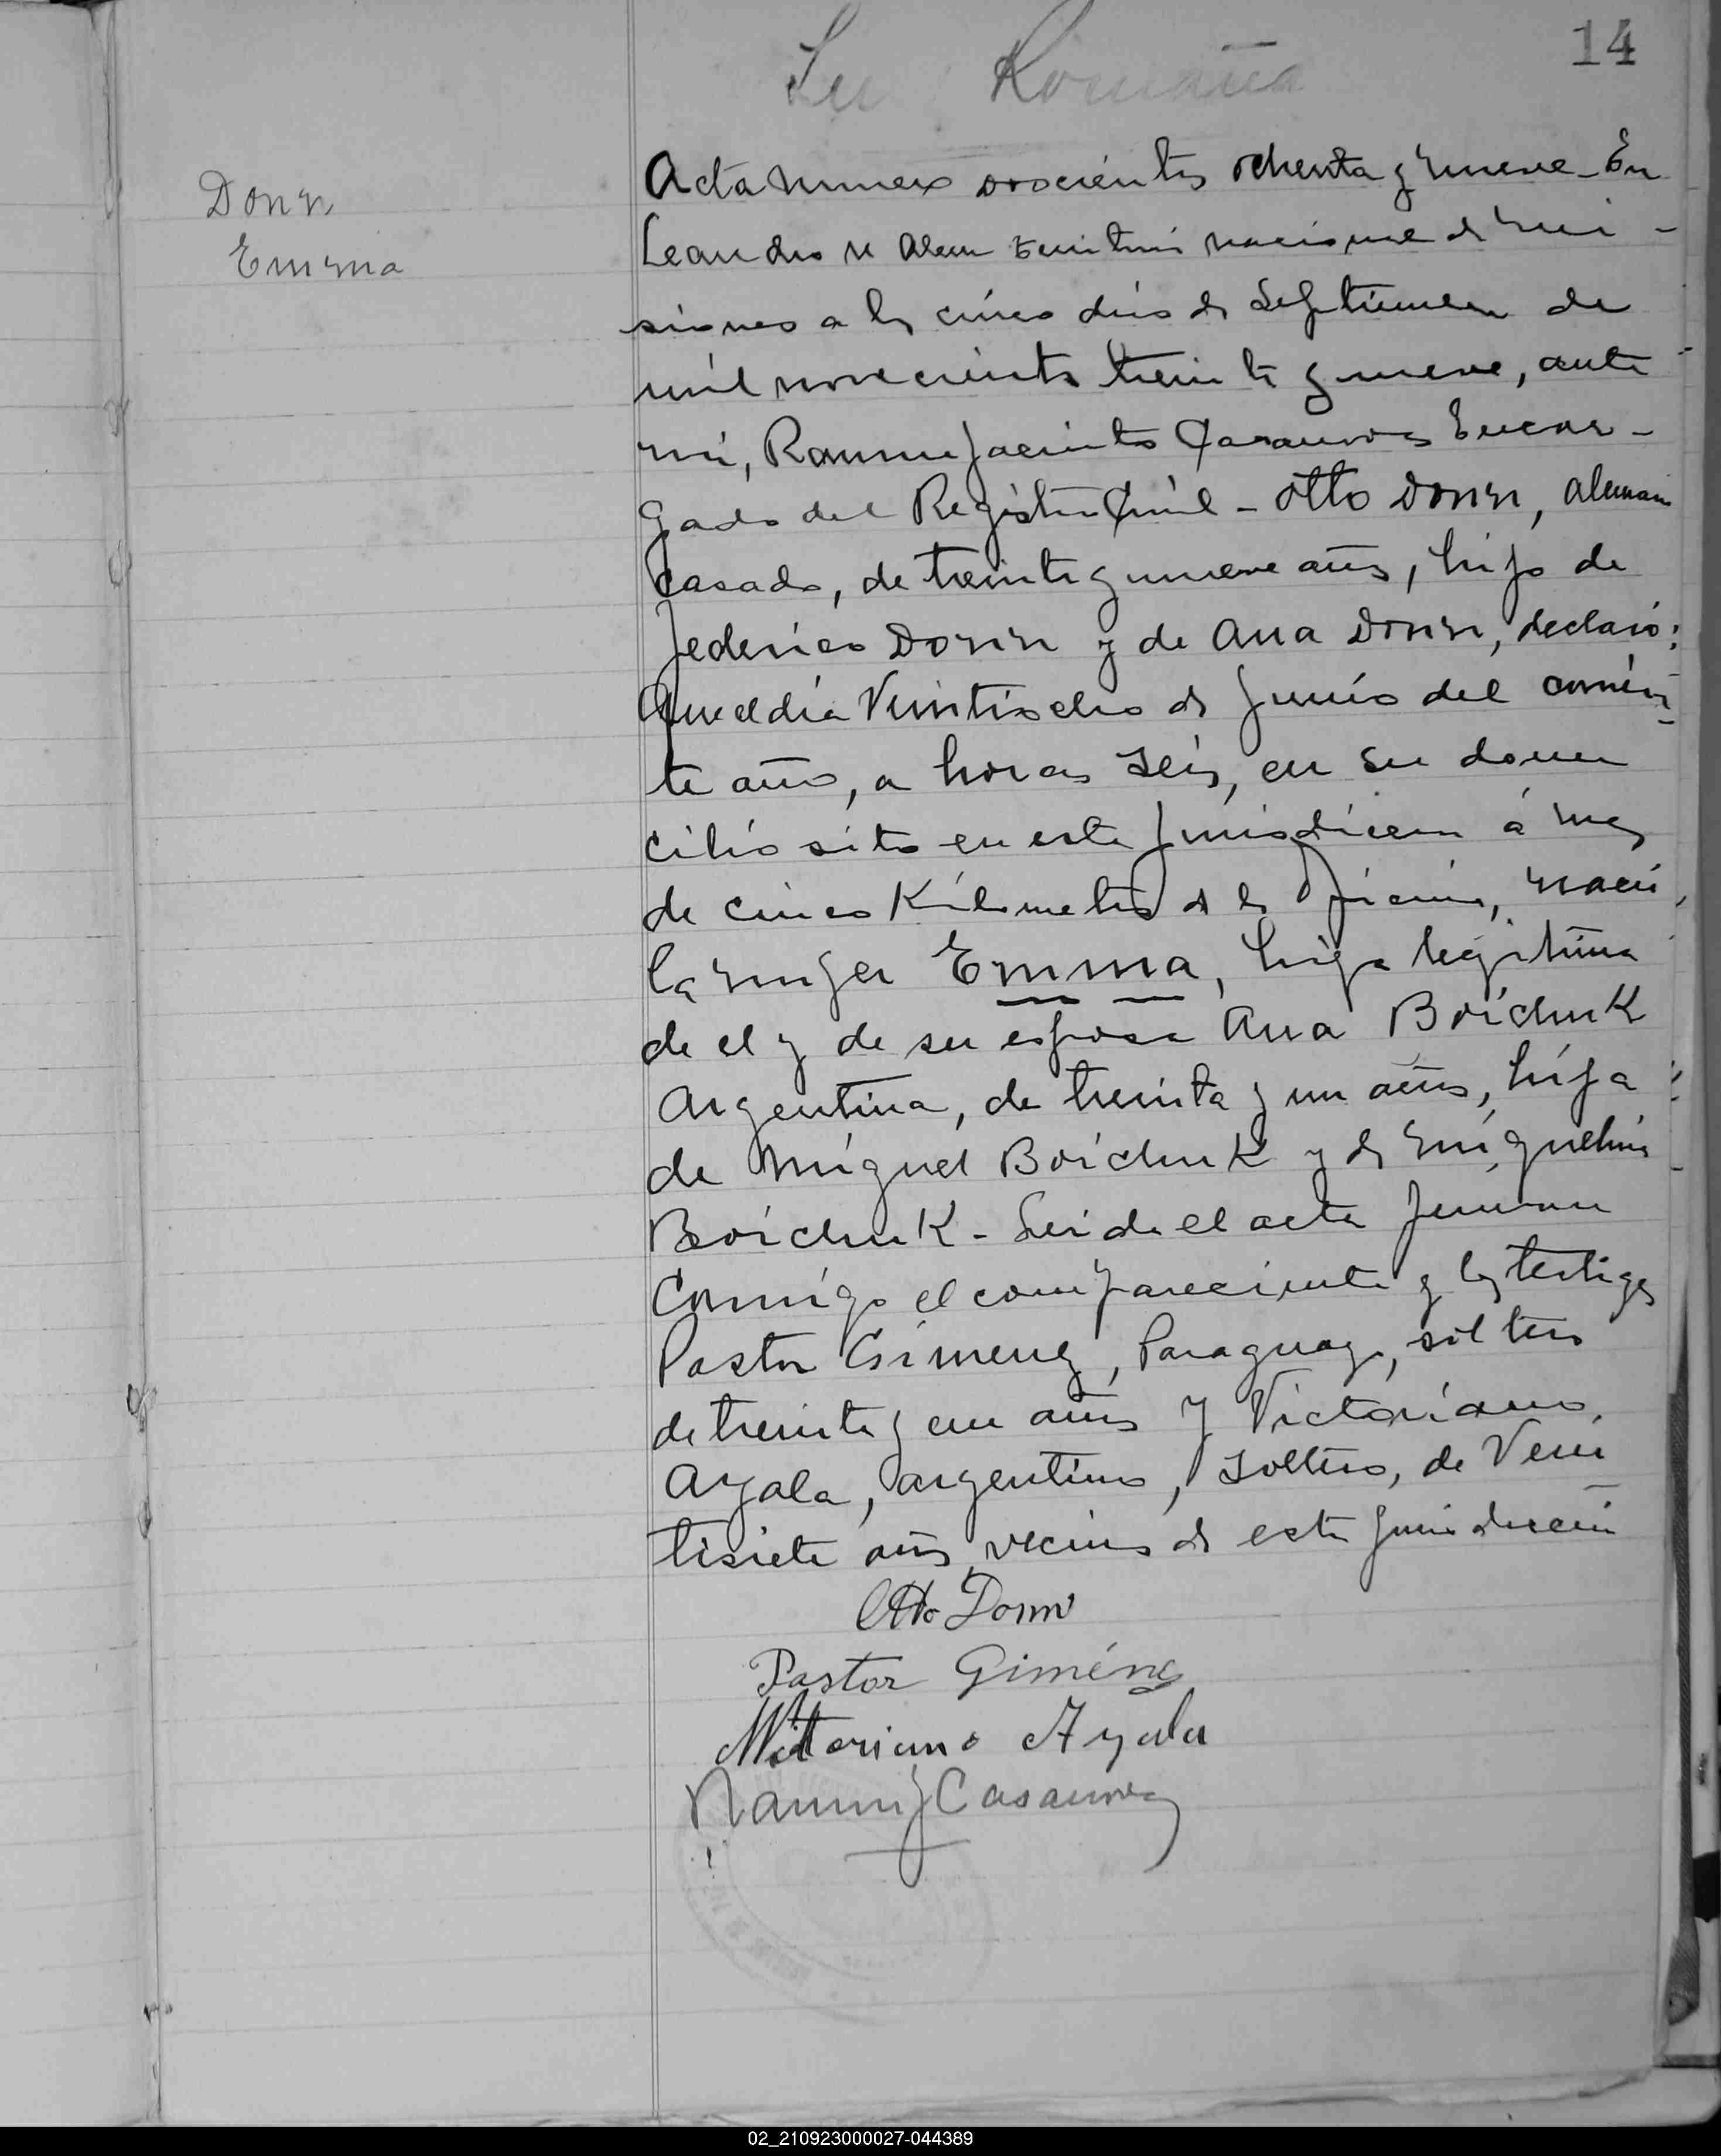 14
Donn
Emma
Acta numero doscientos ochenta y nueve - En
Leandro N Alem territorio nacional de Mi-
siones a los cinco dias de Septiembre de
mil novecientos treinta y nueve, ante
mi, Ramon Jacinto Casanova Encar-
gado del Registro Civil - Otto Donn, aleman
casado, de treinta y nueve años, hijo de
Federico Donn y de Ana Donn, declaró:
Que el dia Veintiocho de Junio del corrien-
te año, a horas seis, en su domi
cilio sito en esta Jurisdiccion á mas
de cinco Kilometros de la Oficina, nació
la mujer Emma, hija legitima
de el y de su esposa Ana Boichuk
Argentina, de treinta y un años, hija
de Miguel Boichuk y de Miguelina
Boichuk - Leida el acta firman
Conmigo el compareciente y los testigos
Pastor Gimenez, Paraguayo, soltero
de treinta y un años y Victoriano
Ayala, argentino, soltero, de Vein
tisiete años vecinos de esta Jurisdicción
Otto Donn
Pastor Giménez
Victoriano Ayala
Ramon J Casanova
02_210923000027-044389